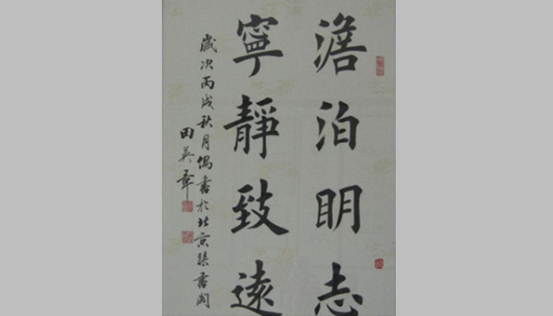 澹泊明志
寧靜致遠
歲次丙戌秋月偶書於北京
田英章